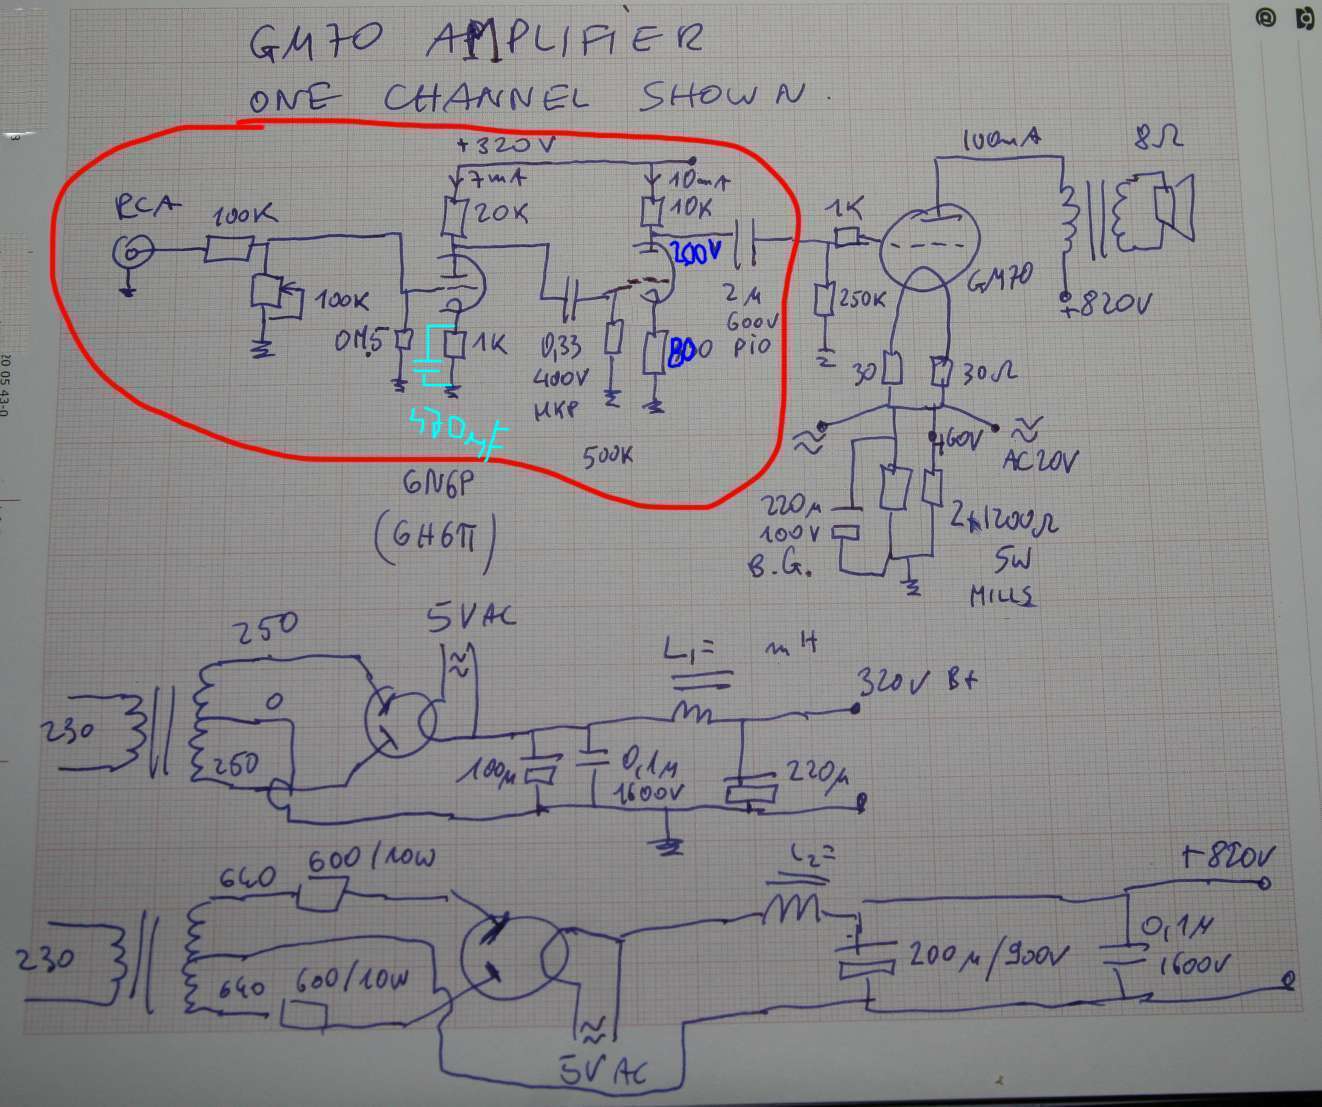 GM70 AMPLIFIER
ONE CHANNEL SHOWN.
+320V
7mA
10mA
100mA
8Ω
RCA
100K
20K
10K
1K
200V
GM70
100K
2µ
600V
PIO
250K
+820V
0M5
1K
0,33
400V
MKP
800
30
30Ω
470µF
500K
+60V
≈
≈
AC20V
6N6P
(6Н6П)
220µ
100V
B.G.
2x1200Ω
5W
MILLS
250
5VAC
≈
L1= mH
320V B+
0
230
250
100µ
0,1µ
1600V
220µ
640
600/10W
L2=
+820V
230
640
600/10W
200µ/900V
0,1µ
1600V
≈
5VAC
20 05 43-0